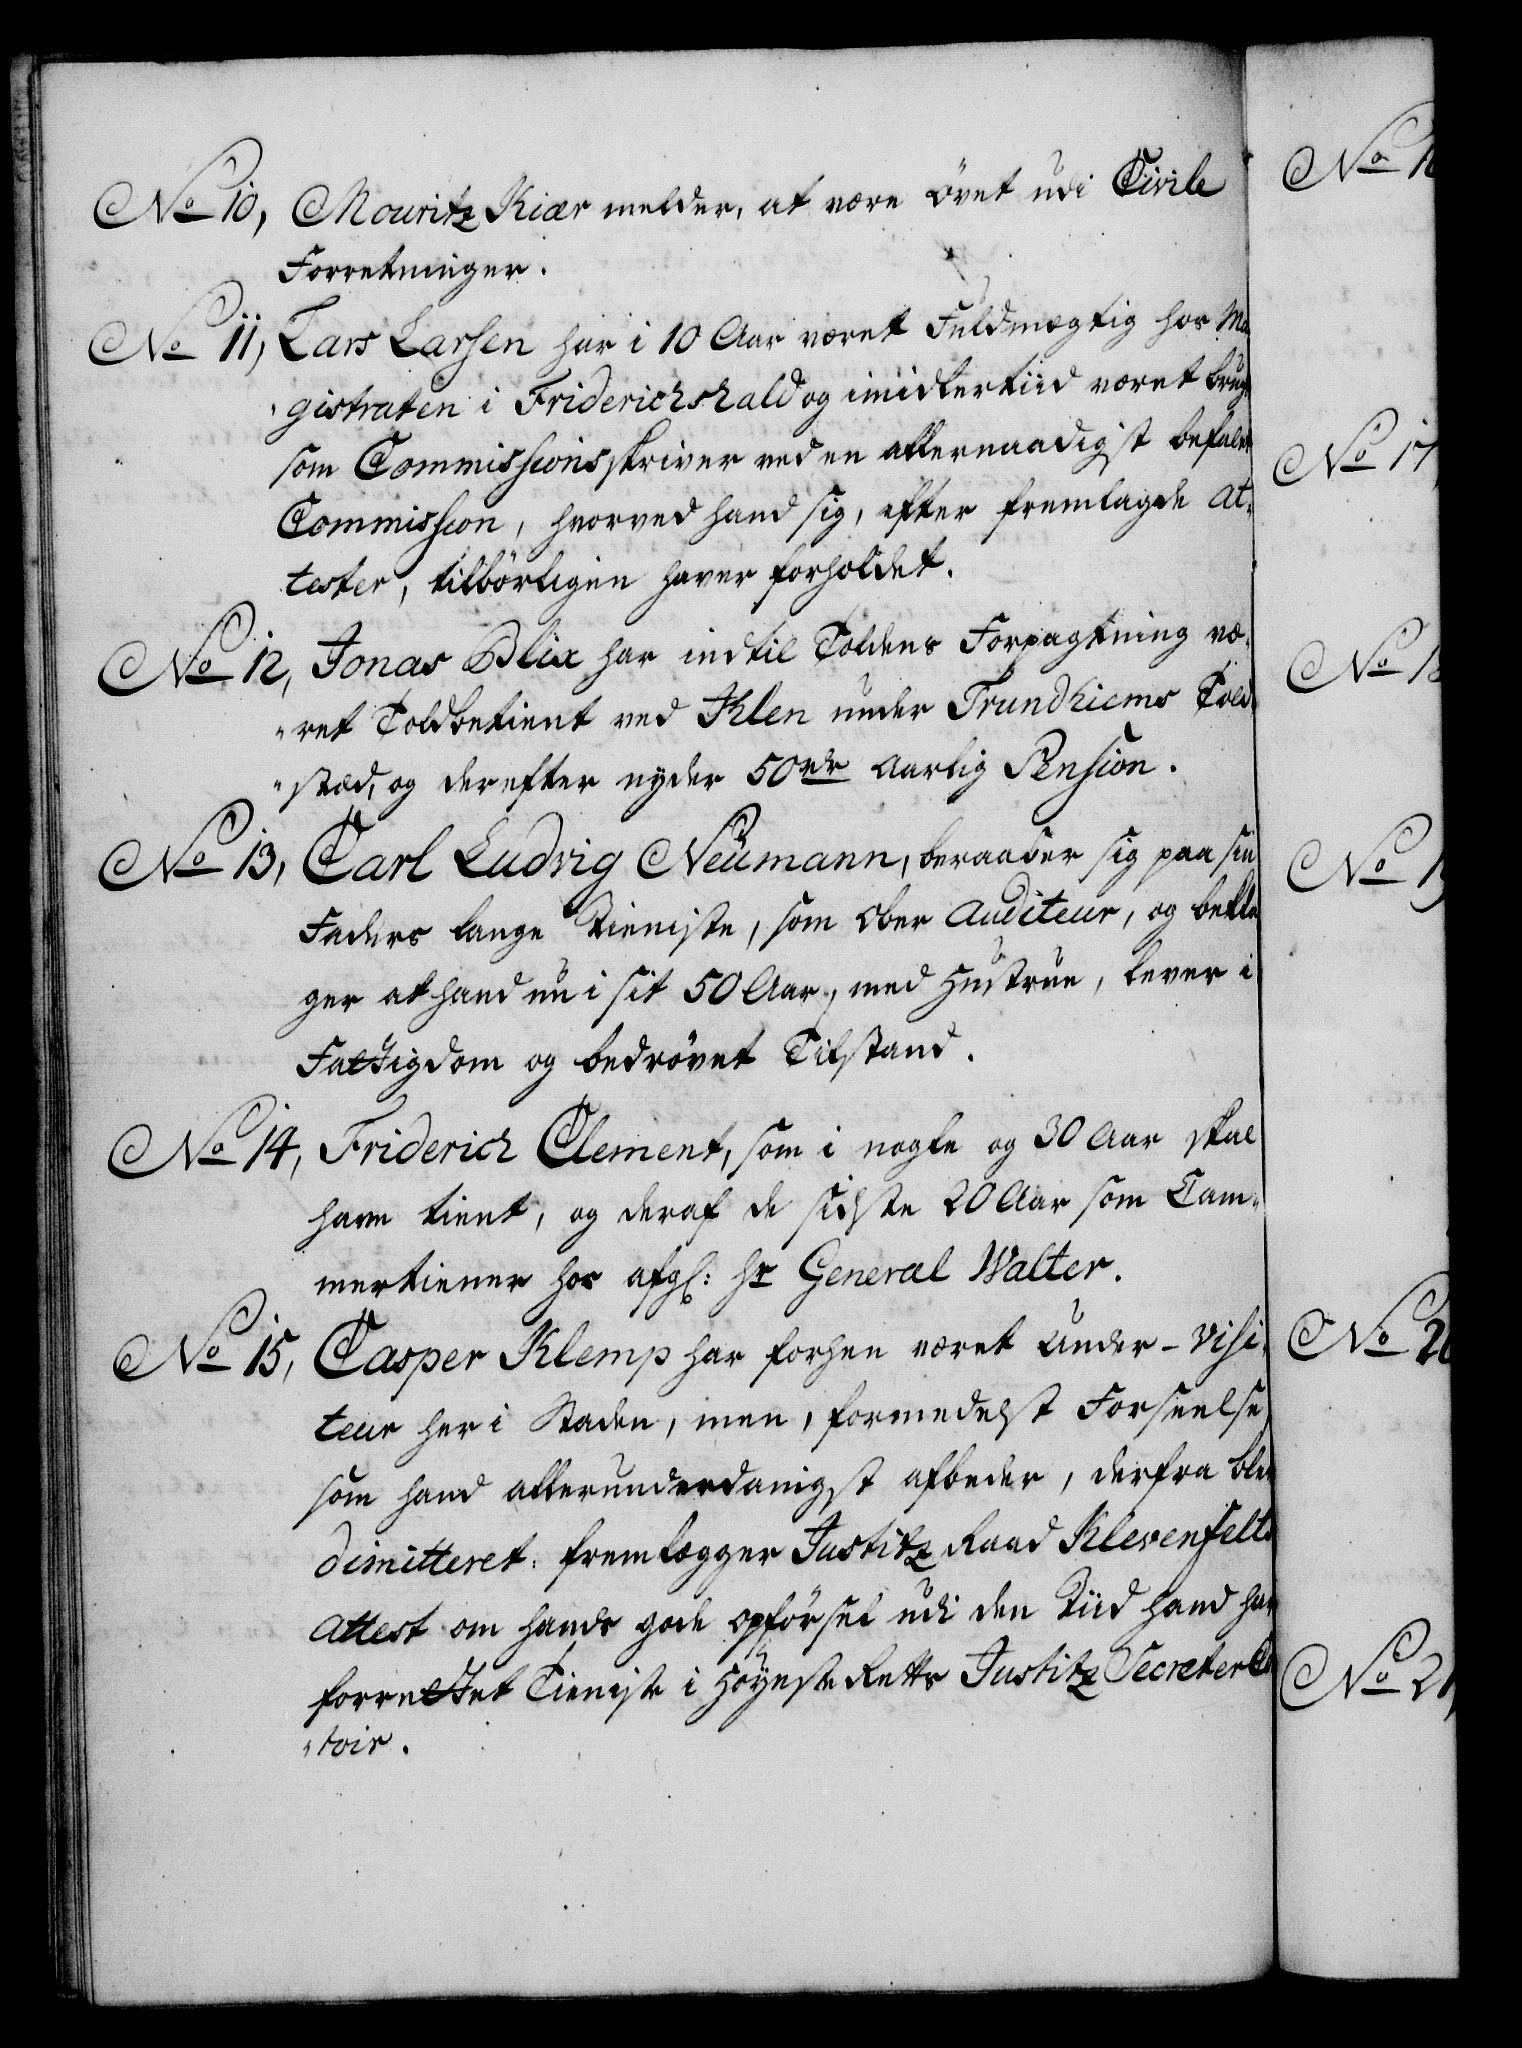 No 10, Mouritz Kiær melder, at være øvet udi Civile
Forretninger.
No 11, Lars Larsen har i 10 Aar været Fuldmægtig hos Ma-
gistraten i Friderichshald og imidlertiid været brugt
som Commissionsskriver ved en allernaadigst befalet
Commission, hvorved hand sig, efter fremlagde At-
tester, tilbørligen haver forholdet.
No 12, Jonas Blix har indtil Toldens Forpagtning væ-
ret Toldbetient ved Klen under Trundhiems Told-
stæd, og derefter nyder 50 rdr aarlig Pension.
No 13, Carl Ludvig Neumann, beraaber sig paa sin
Faders lange Tieniste, som Ober Auditeur, og bekla
ger at hand nu i sit 50 Aar, med Hustrue, lever i
Fattigdom og bedrøvet Tilstand.
No 14, Friderich Clement, som i nogle og 30 Aar skal
have tient, og deraf de sidste 20 Aar som Cam-
mertiener hos afgl: Hr General Walter.
No 15, Casper Klemp har forhen været Under-Visi-
teur her i Staden, men, formedelst Forseelse,
som hand allerunderdanigst afbeder, derfra blev
dimitteret: fremlægger Justitz Raad Klevenfelts
Attest om hands gode Opførsel udi den Tiid hand har
forrettet Tieniste i Høyeste Retts Justitz Secreter Con
toir.
No 17
No 21,